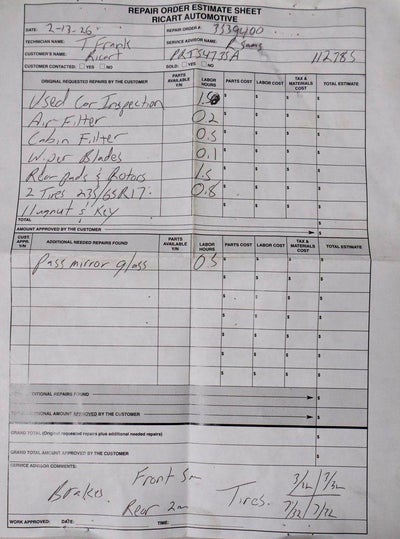 REPAIR ORDER ESTIMATE SHEET
RICART AUTOMOTIVE
DATE: 2-13-26 REPAIR ORDER #: 3539400
TECHNICIAN NAME: T Frank SERVICE ADVISOR NAME:
CUSTOMER'S NAME: Ricart PRT54735A 112785
CUSTOMER CONTACTED: YES NO SOLD: YES NO
ORIGINAL REQUESTED REPAIRS BY THE CUSTOMER PARTS AVAILABLE Y/N LABOR HOURS PARTS COST LABOR COST TAX & MATERIALS COST TOTAL ESTIMATE
Used Car Inspection 1.5 $ $ $ $
Air Filter 0.2 $ $ $ $
Cabin Filter 0.5 $ $ $ $
Wiper Blades 0.1 $ $ $ $
Rear pads & Rotors 1.5 $ $ $ $
2 Tires 275/65R17. 0.8 $ $ $ $
Lugnut & Key $ $ $ $
TOTAL $
AMOUNT APPROVED BY THE CUSTOMER $
CUST. APPR. Y/N ADDITIONAL NEEDED REPAIRS FOUND PARTS AVAILABLE Y/N LABOR HOURS PARTS COST LABOR COST TAX & MATERIALS COST TOTAL ESTIMATE
Pass mirror glass 0.5 $ $ $ $
$ $ $ $
$ $ $ $
$ $ $ $
$ $ $ $
$ $ $ $
ADDITIONAL REPAIRS FOUND $
TOTAL ADDITIONAL AMOUNT APPROVED BY THE CUSTOMER $
GRAND TOTAL (Original requested repairs plus additional needed repairs) $
GRAND TOTAL AMOUNT APPROVED BY THE CUSTOMER $
SERVICE ADVISOR COMMENTS:
Brakes Front 5m Tires. 3/32 7/32
Rear 2m 7/32 7/32
WORK APPROVED: DATE: TIME: